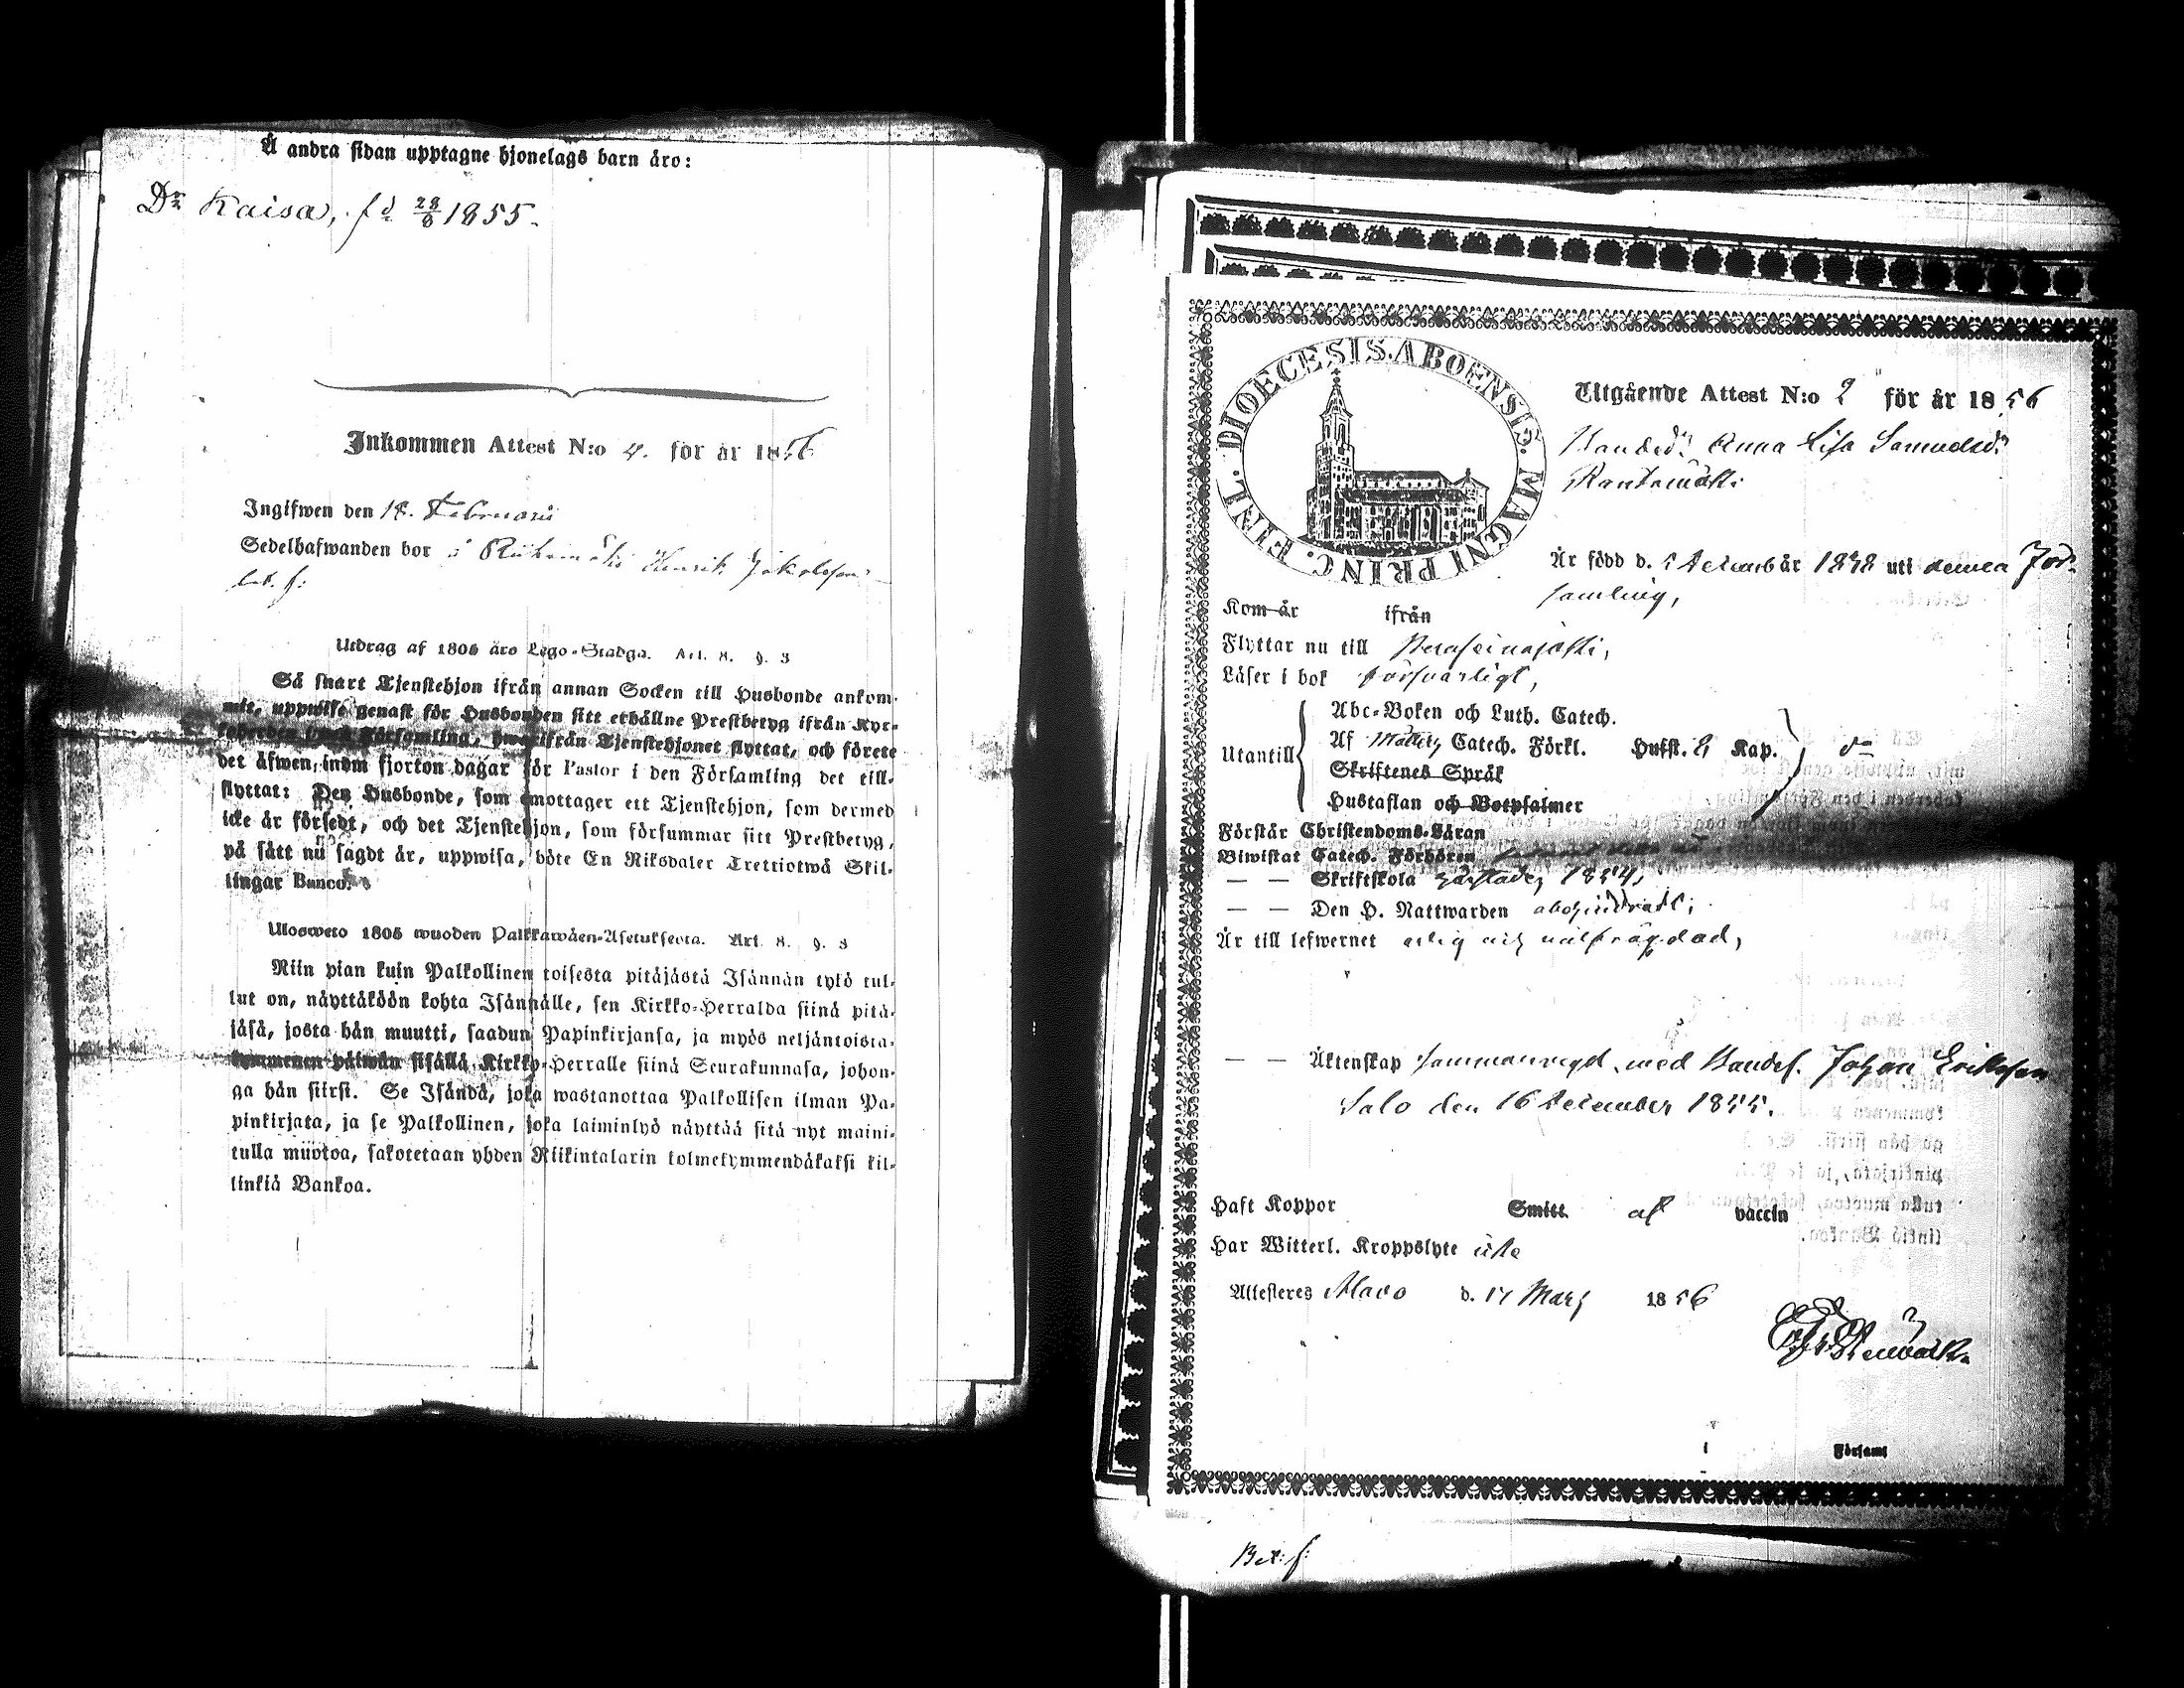 Å andra sidan upptagne hjonelags barn äro:
Dr Kaisa, fd 28/8 1855.
Inkommen Attest N:o 4. för år 1856
Ingifwen den 18. Februarii
Sedelhafwanden bor å Henrik Jakobsson
Utdrag af 1805 års Lego-Stadga. Art. 8. §. 3
Så snart Tjenstehjon ifrån annan Socken till Husbonde ankom-
mit, uppwise genast för Husbonden sitt erhållne Prestbetyg ifrån Kyr-
koherden i den Församling, hwarifrån Tjenstehjonet flyttat, och förete
det äfwen, inom fjorton dagar för Pastor i den Församling det till-
flyttat: Den Husbonde, som emottager ett Tjenstehjon, som dermed
icke är försedt, och det Tjenstehjon, som försummar sitt Prestbetyg,
på sätt nu sagdt är, uppwisa, böte En Riksdaler Trettiotwå Skil-
lingar Banco.
Ulosweto 1805 wuoden Palkkawäen-Asetuksesta. Art. 8. §. 3
Niin pian kuin Palkollinen toisesta pitäjästä Isännän tykö tul-
lut on, näyttäköön kohta Isännälle, sen Kirkko-Herralda siinä pitä-
jäsä, josta hän muutti, saadun Papinkirjansa, ja myös neljäntoista-
kymmenen päiwän sisällä Kirkko-Herralle siinä Seurakunnasa, johon-
ga hän siirsi. Se Isändä, joka wastanottaa Palkollisen ilman Pa-
pinkirjata, ja se Palkollinen, joka laiminlyö näyttää sitä nyt maini-
tulla muotoa, sakotetaan yhden Riikintalarin kolmekymmendäkaksi kil-
linkiä Bankoa.
DIOECESIS ABOENSIS. MAGNI PRINC. FINL.
Utgående Attest N:o 2 för år 1856
Anna Lisa Samuelsdr
Är född d. 5 December 1838 uti denna För-
samling,
Kom år ifrån
Flyttar nu till
Läser i bok försvarligt,
Abc-Boken och Luth. Catech.
Utantill Af Catech. Förkl. Husst. & Kap. do
Skriftenes Språk
Hustaflan och Botpsalmer
Förstår Christendoms-Läran
Biwistat Catech. Förhören
— — Skriftskola 1854,
— — Den H. Nattwarden obehindradt;
Är till lefwernet ärlig och välfrägdad,
— — Äktenskap sammanvigd med Johan Eriksson
Salo den 16 December 1855.
Haft Koppor Smitt. af vaccin
Har Witterl. Kroppslyte icke
Attesteres Alavo d. 17 Mars 1856
Församl